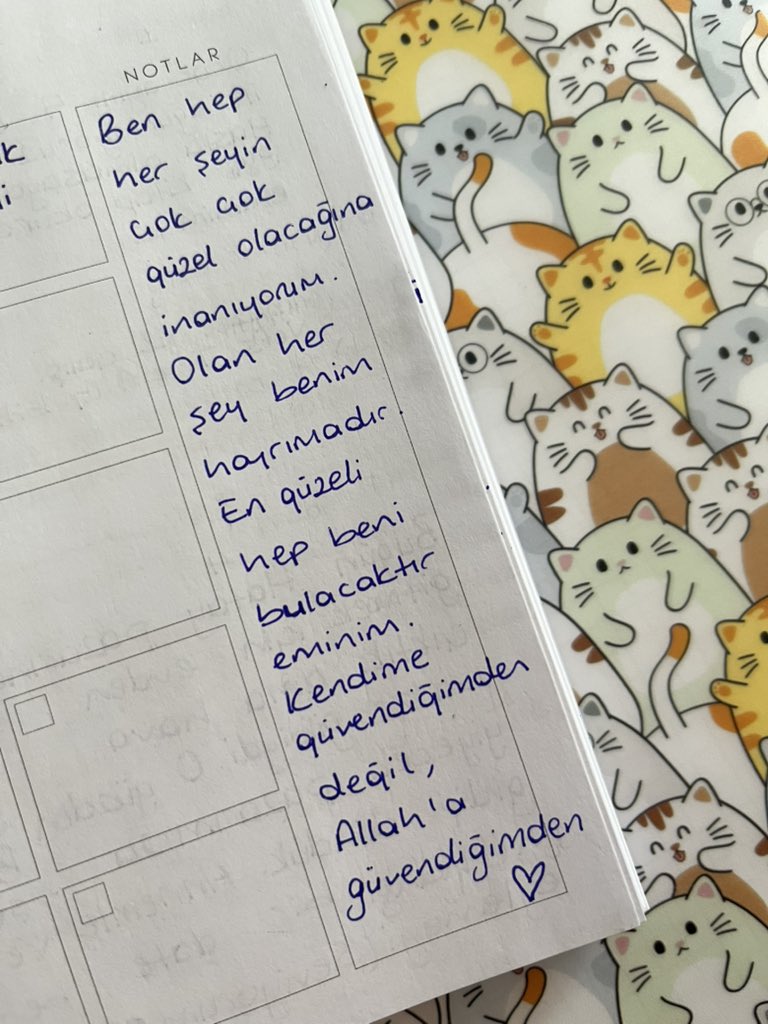 NOTLAR
Ben hep
her şeyin
çok çok
güzel olacağına
inanıyorum.
Olan her
şey benim
hayrımadır.
En güzeli
hep beni
bulacaktır
eminim.
Kendime
güvendiğimden
değil,
Allah'a
güvendiğimden
♡